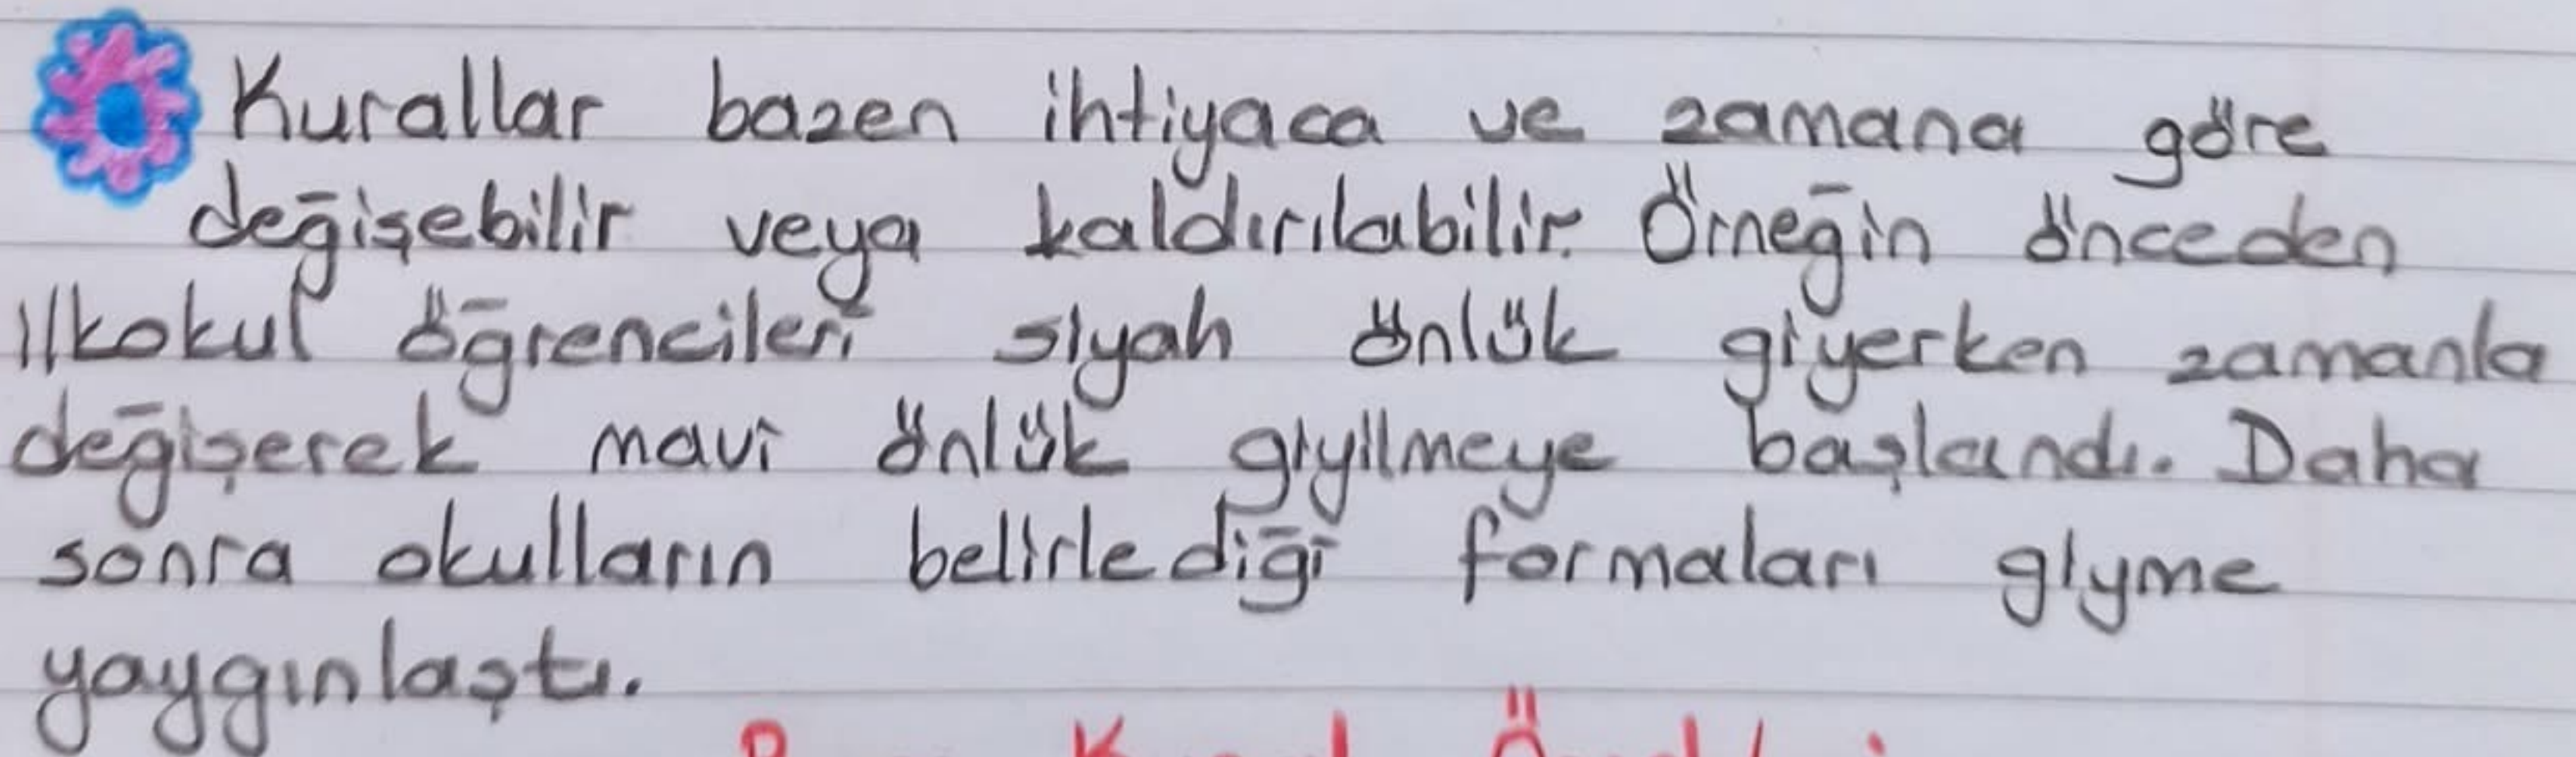 Kurallar bazen ihtiyaca ve zamana göre
değişebilir veya kaldırılabilir. Örneğin önceden
ilkokul öğrencileri siyah önlük giyerken zamanla
değişerek mavi önlük giyilmeye başlandı. Daha
sonra okulların belirlediği formaları giyme
yaygınlaştı.